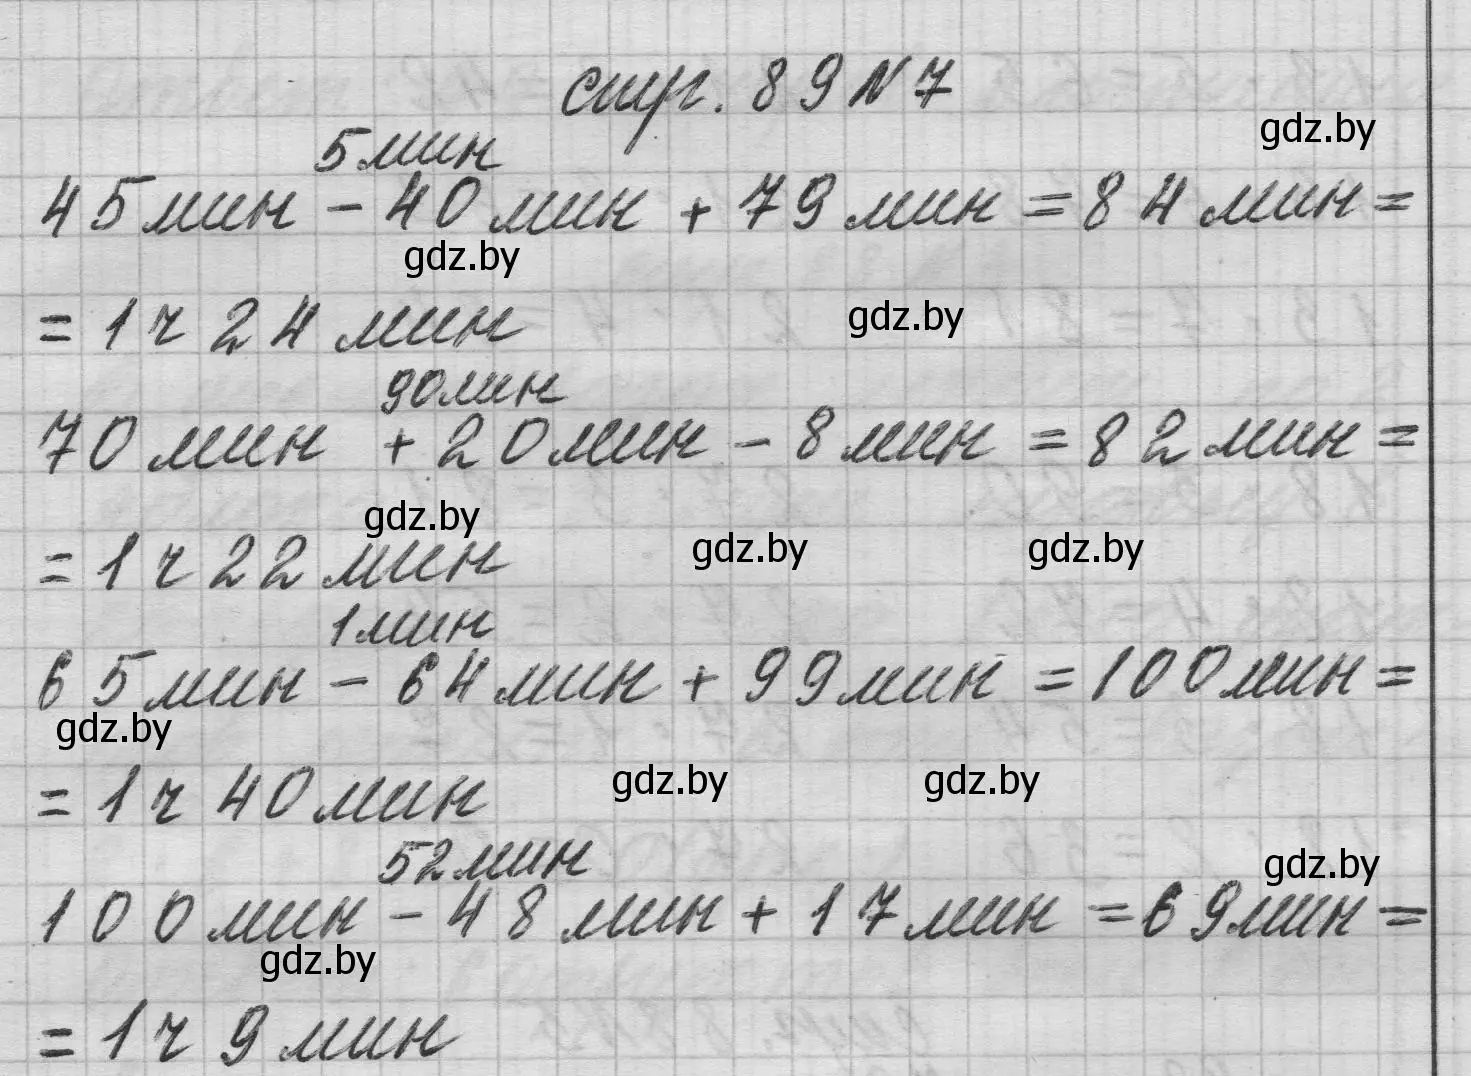 стр. 89 N 7
gdz.by
5 мин
45 мин - 40 мин + 79 мин = 84 мин =
gdz.by
= 1 ч 24 мин
gdz.by
90 мин
70 мин + 20 мин - 8 мин = 82 мин =
gdz.by
= 1 ч 22 мин
gdz.by gdz.by
1 мин
65 мин - 64 мин + 99 мин = 100 мин =
gdz.by
= 1 ч 40 мин
gdz.by gdz.by
52 мин
gdz.by
100 мин - 48 мин + 17 мин = 69 мин =
gdz.by
= 1 ч 9 мин